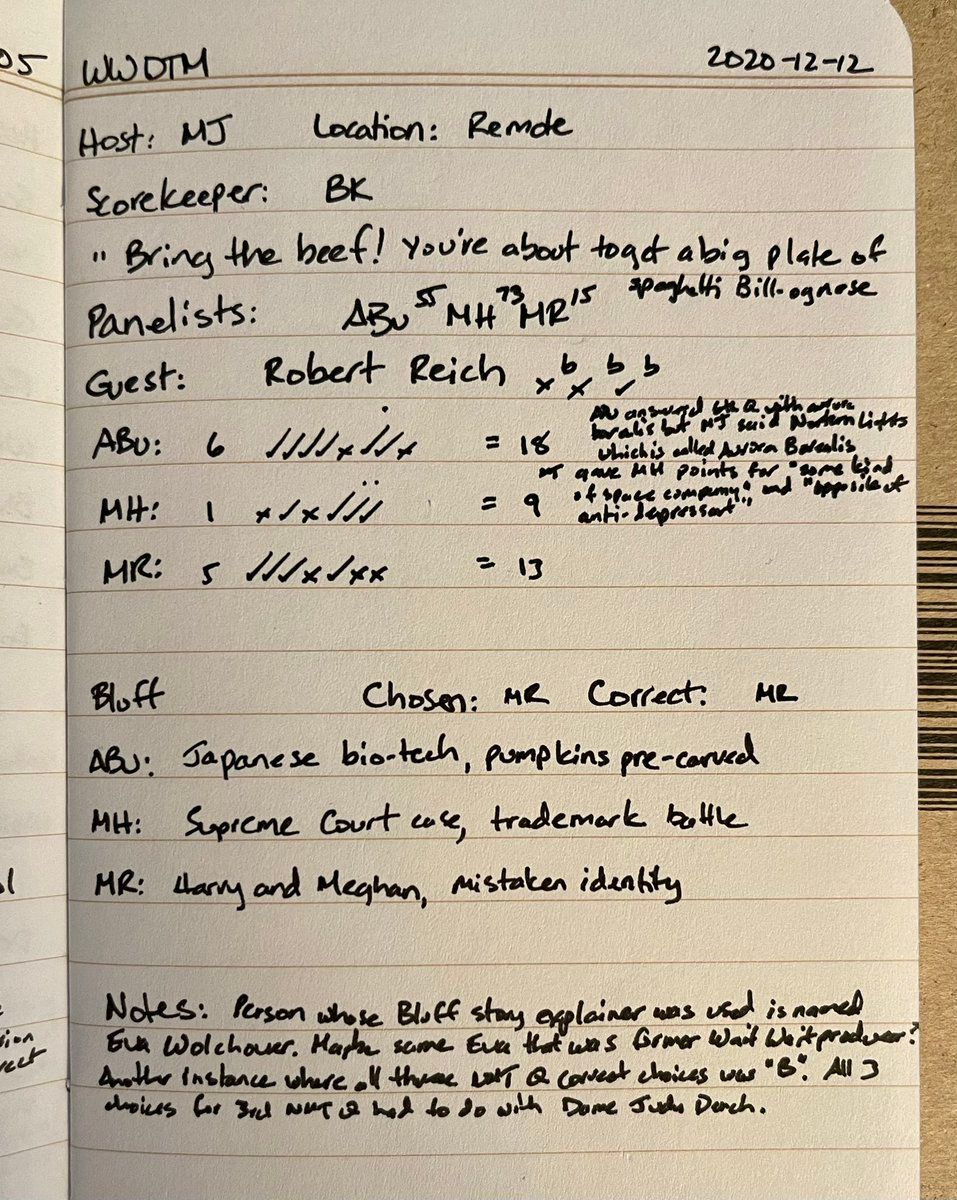 05
WWDTM 2020-12-12
Host: MJ Location: Remote
Scorekeeper: BK
"Bring the beef! You're about to get a big plate of
spaghetti Bill-ognese
Panelists: ABu 55 MH 73 MR 15
Guest: Robert Reich ×b ×b ✓b
ABU: 6 ✓✓✓✓×✓✓× = 18
ABU answered 6th Q with aurora
borealis but MJ said Northern Lights
which is called Aurora Borealis
MJ gave MH points for "some kind
of space company," and "opposite of
anti-depressant"
MH: 1 ×✓×✓✓✓ = 9
MR: 5 ✓✓✓×✓×× = 13
Bluff Chosen: MR Correct: MR
ABU: Japanese bio-tech, pumpkins pre-carved
MH: Supreme Court case, trademark battle
MR: Harry and Meghan, mistaken identity
Notes: Person whose Bluff story explainer was used is named
Eva Wolchover. Maybe same Eva that was former Wait Wait producer?
Another instance where all three NMJ Q correct choices was "B". All 3
choices for 3rd NMJ Q had to do with Dame Judi Dench.